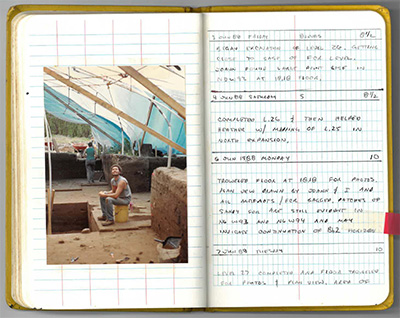 3 JUN 88 FRIDAY 8 1/2
BEGAN EXCAVATION OF LEVEL 26. GETTING
CLOSE TO BASE OF FCR LEVEL.
JOHN FOUND LARGE POINT BASE IN
AT 18.18 FLOOR.
4 JUN 88 SATURDAY 5 8 1/2
COMPLETED L.26 & THEN HELPED
HEATHER W/ MAPPING OF L.25 IN
NORTH EXPANSION.
6 JUN 1988 MONDAY 10
TROWELED FLOOR AT 18.18 FOR PHOTOS.
PLAN VIEW DRAWN BY JOHN & I AND
ALL ARTIFACTS / FCR BAGGED. PATCHES OF
SANDY SOIL ARE STILL EVIDENT IN
N64W93 AND N64W94 AND MAY
INDICATE CONTINUATION OF B62
7 JUN 88 TUESDAY 10
LEVEL 27 COMPLETED AND FLOOR TROWELED
FOR PHOTOS & PLAN VIEW. AREA OF